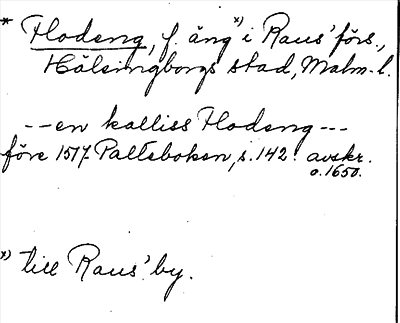 * Flodeng, f. äng *) i Raus' förs.,
Hälsingborgs stad, Malm. l.
-- en kalliss Flodeng ---
före 1517 Palteboken, s. 142. avskr.
o. 1650.
*) till Raus' by.